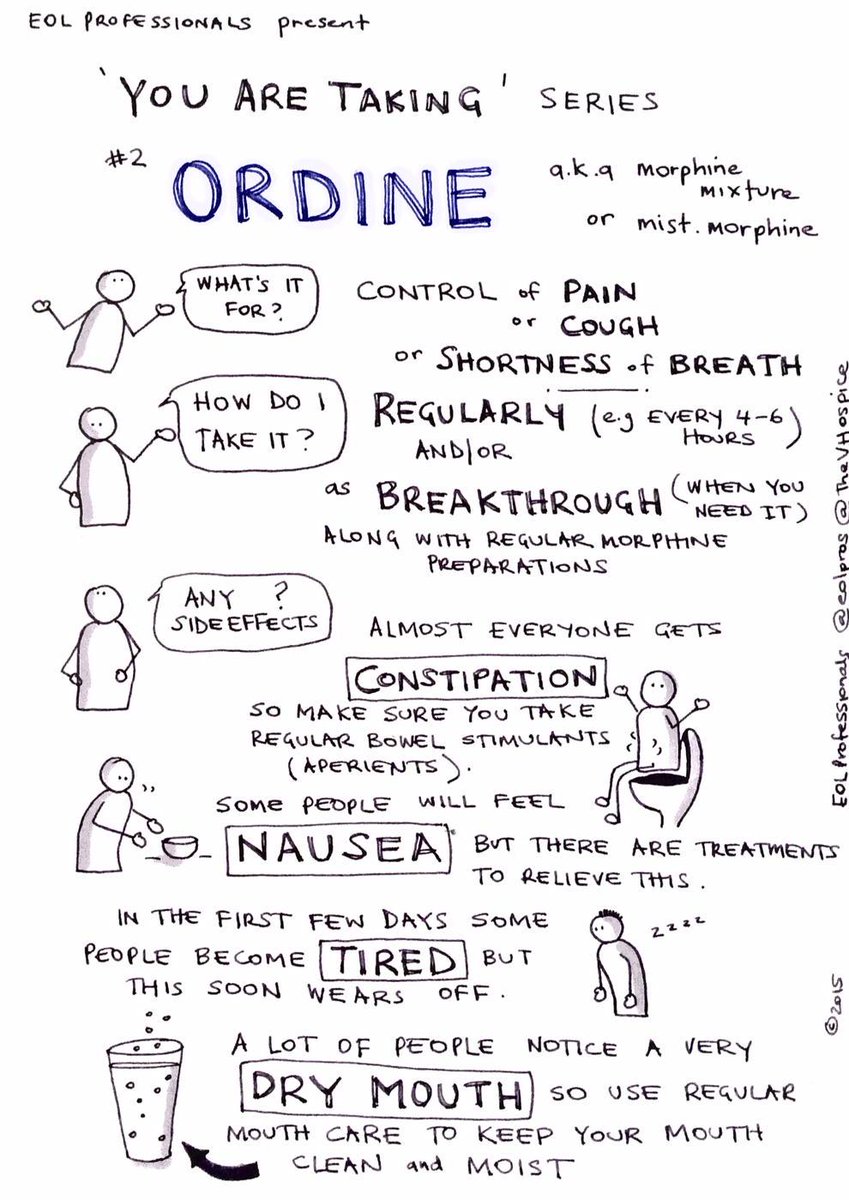 EOL PROFESSIONALS present
'YOU ARE TAKING' SERIES
#2 ORDINE a.k.a morphine
mixture
or mist. morphine
WHAT'S IT
FOR?
CONTROL of PAIN
or COUGH
or SHORTNESS of BREATH
HOW DO I
TAKE IT?
REGULARLY (e.g EVERY 4-6
HOURS)
AND/OR
as BREAKTHROUGH (WHEN YOU
NEED IT)
ALONG WITH REGULAR MORPHINE
PREPARATIONS
ANY ?
SIDE EFFECTS
ALMOST EVERYONE GETS
CONSTIPATION
SO MAKE SURE YOU TAKE
REGULAR BOWEL STIMULANTS
(APERIENTS).
SOME PEOPLE WILL FEEL
NAUSEA BUT THERE ARE TREATMENTS
TO RELIEVE THIS.
IN THE FIRST FEW DAYS SOME
PEOPLE BECOME TIRED BUT
THIS SOON WEARS OFF.
zzzz
A LOT OF PEOPLE NOTICE A VERY
DRY MOUTH SO USE REGULAR
MOUTH CARE TO KEEP YOUR MOUTH
CLEAN and MOIST
©2015 EOLProfessionals @eolpros @TheVHospice